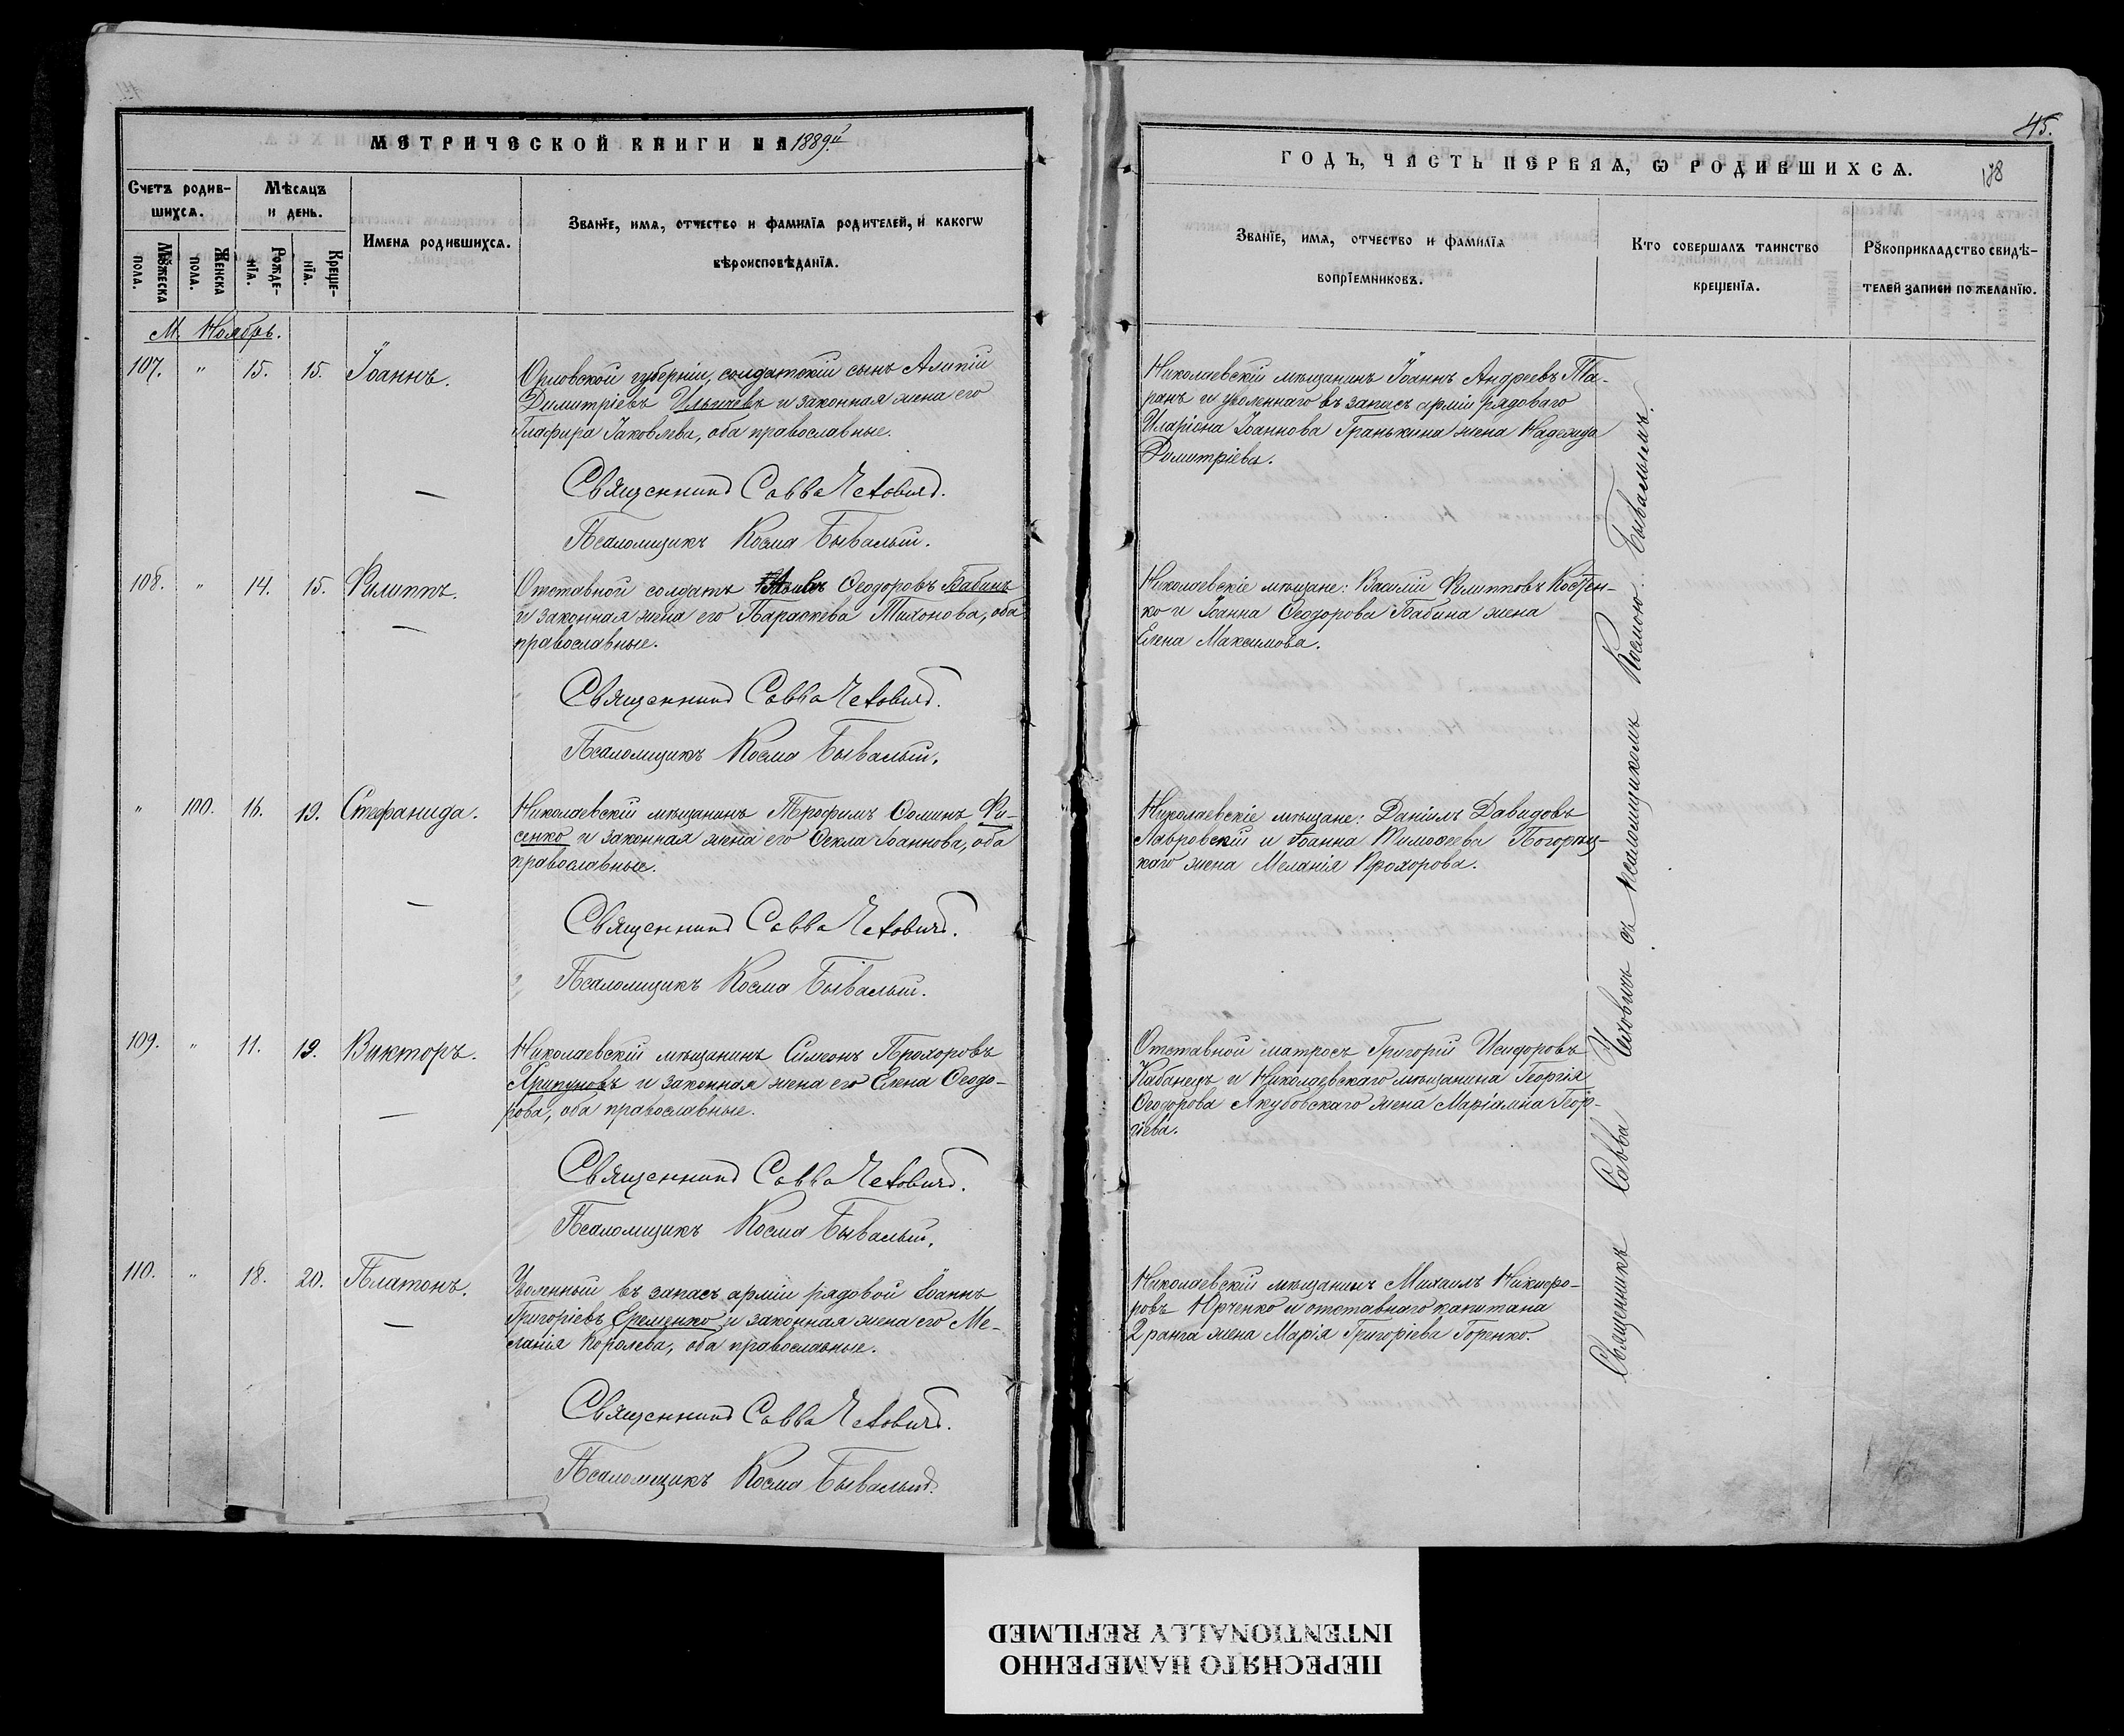 МЕТРИЧЕСКОЙ КНИГИ НА 1889й
Счетъ родив-
шихся.
Мѣсяцъ
и день.
Мужеска
пола.
Женска
пола.
Рожде-
нія.
Креще-
нія.
Имена родившихся.
Званіе, имя, отчество и фамилія родителей, и какогѡ
вѣроисповѣданія.
М. Ноябрь.
107. " 15. 15. Іоаннъ.
Орловской губерніи, солдатскій сынъ Алипій
Димитріевъ Ильичевъ и законная жена его
Глафира Іаковлева, оба православные.
Священникъ Савва Чеховичъ.
Псаломщикъ Косма Бывалый.
108. " 14. 15. Филиппъ.
Отставной солдатъ Ѳеодоровъ Бабинъ
и законная жена его Параскева Тихонова, оба
православные.
Священникъ Савва Чеховичъ.
Псаломщикъ Косма Бывалый.
" 100. 16. 19. Стефанида.
Николаевскій мѣщанинъ Трофимъ Ѳоминъ Фи-
сенко и законная жена его Ѳекла Іоаннова, оба
православные.
Священникъ Савва Чеховичъ.
Псаломщикъ Косма Бывалый.
109. " 11. 19. Викторъ.
Николаевскій мѣщанинъ Симеонъ Прохоровъ
Хрипуновъ и законная жена его Елена Ѳеодо-
рова, оба православные.
Священникъ Савва Чеховичъ.
Псаломщикъ Косма Бывалый.
110. " 18. 20. Платонъ.
Уволенный въ запасъ арміи рядовой Іоаннъ
Григоріевъ Еременко и законная жена его Ме-
ланія Королева, оба православные.
Священникъ Савва Чеховичъ.
Псаломщикъ Косма Бывалый.
45.
ГОДЪ, ЧАСТЬ ПЕРВАЯ, Ѡ РОДИВШИХСЯ.
178
Званіе, имя, отчество и фамилія
вопріемниковъ.
Кто совершалъ таинство
крещенія.
Рукоприкладство свидѣ-
телей записи по желанію.
Николаевскій мѣщанинъ Іоаннъ Андреевъ Та-
ранъ и уволеннаго въ запасъ арміи рядоваго
Иларіона Іоаннова Гранькина жена Надежда
Димитріева.
Николаевскіе мѣщане: Василій Филипповъ Костен-
ко и Іоанна Ѳеодорова Бабина жена
Елена Максимова.
Николаевскіе мѣщане: Даніилъ Давидовъ
Лавровскій и Іоанна Тимоѳеева Погорец-
каго жена Меланія Прохорова.
Отставной матросъ Григорій Исидоровъ
Кабанецъ и Николаевскаго мѣщанина Георгія
Ѳеодорова Якубовскаго жена Маріамна Геор-
гіева.
Николаевскій мѣщанинъ Михаилъ Никифо-
ровъ Юрченко и отставнаго капитана
2 ранга жена Марія Григоріева Горенко.
Священникъ Савва Чеховичъ съ псаломщикомъ Космою Бывалымъ.
ПЕРЕСНЯТО НАМЕРЕННО
INTENTIONALLY REFILMED